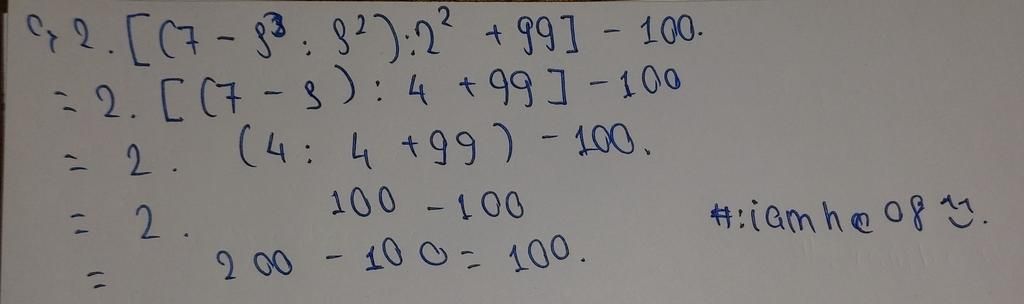 c, 2. [(7 - 3³ : 3²) : 2² + 99] - 100.
= 2. [(7 - 3) : 4 + 99] - 100
= 2. (4 : 4 + 99) - 100.
= 2. 100 - 100
= 200 - 100 = 100.
#:iamhe08